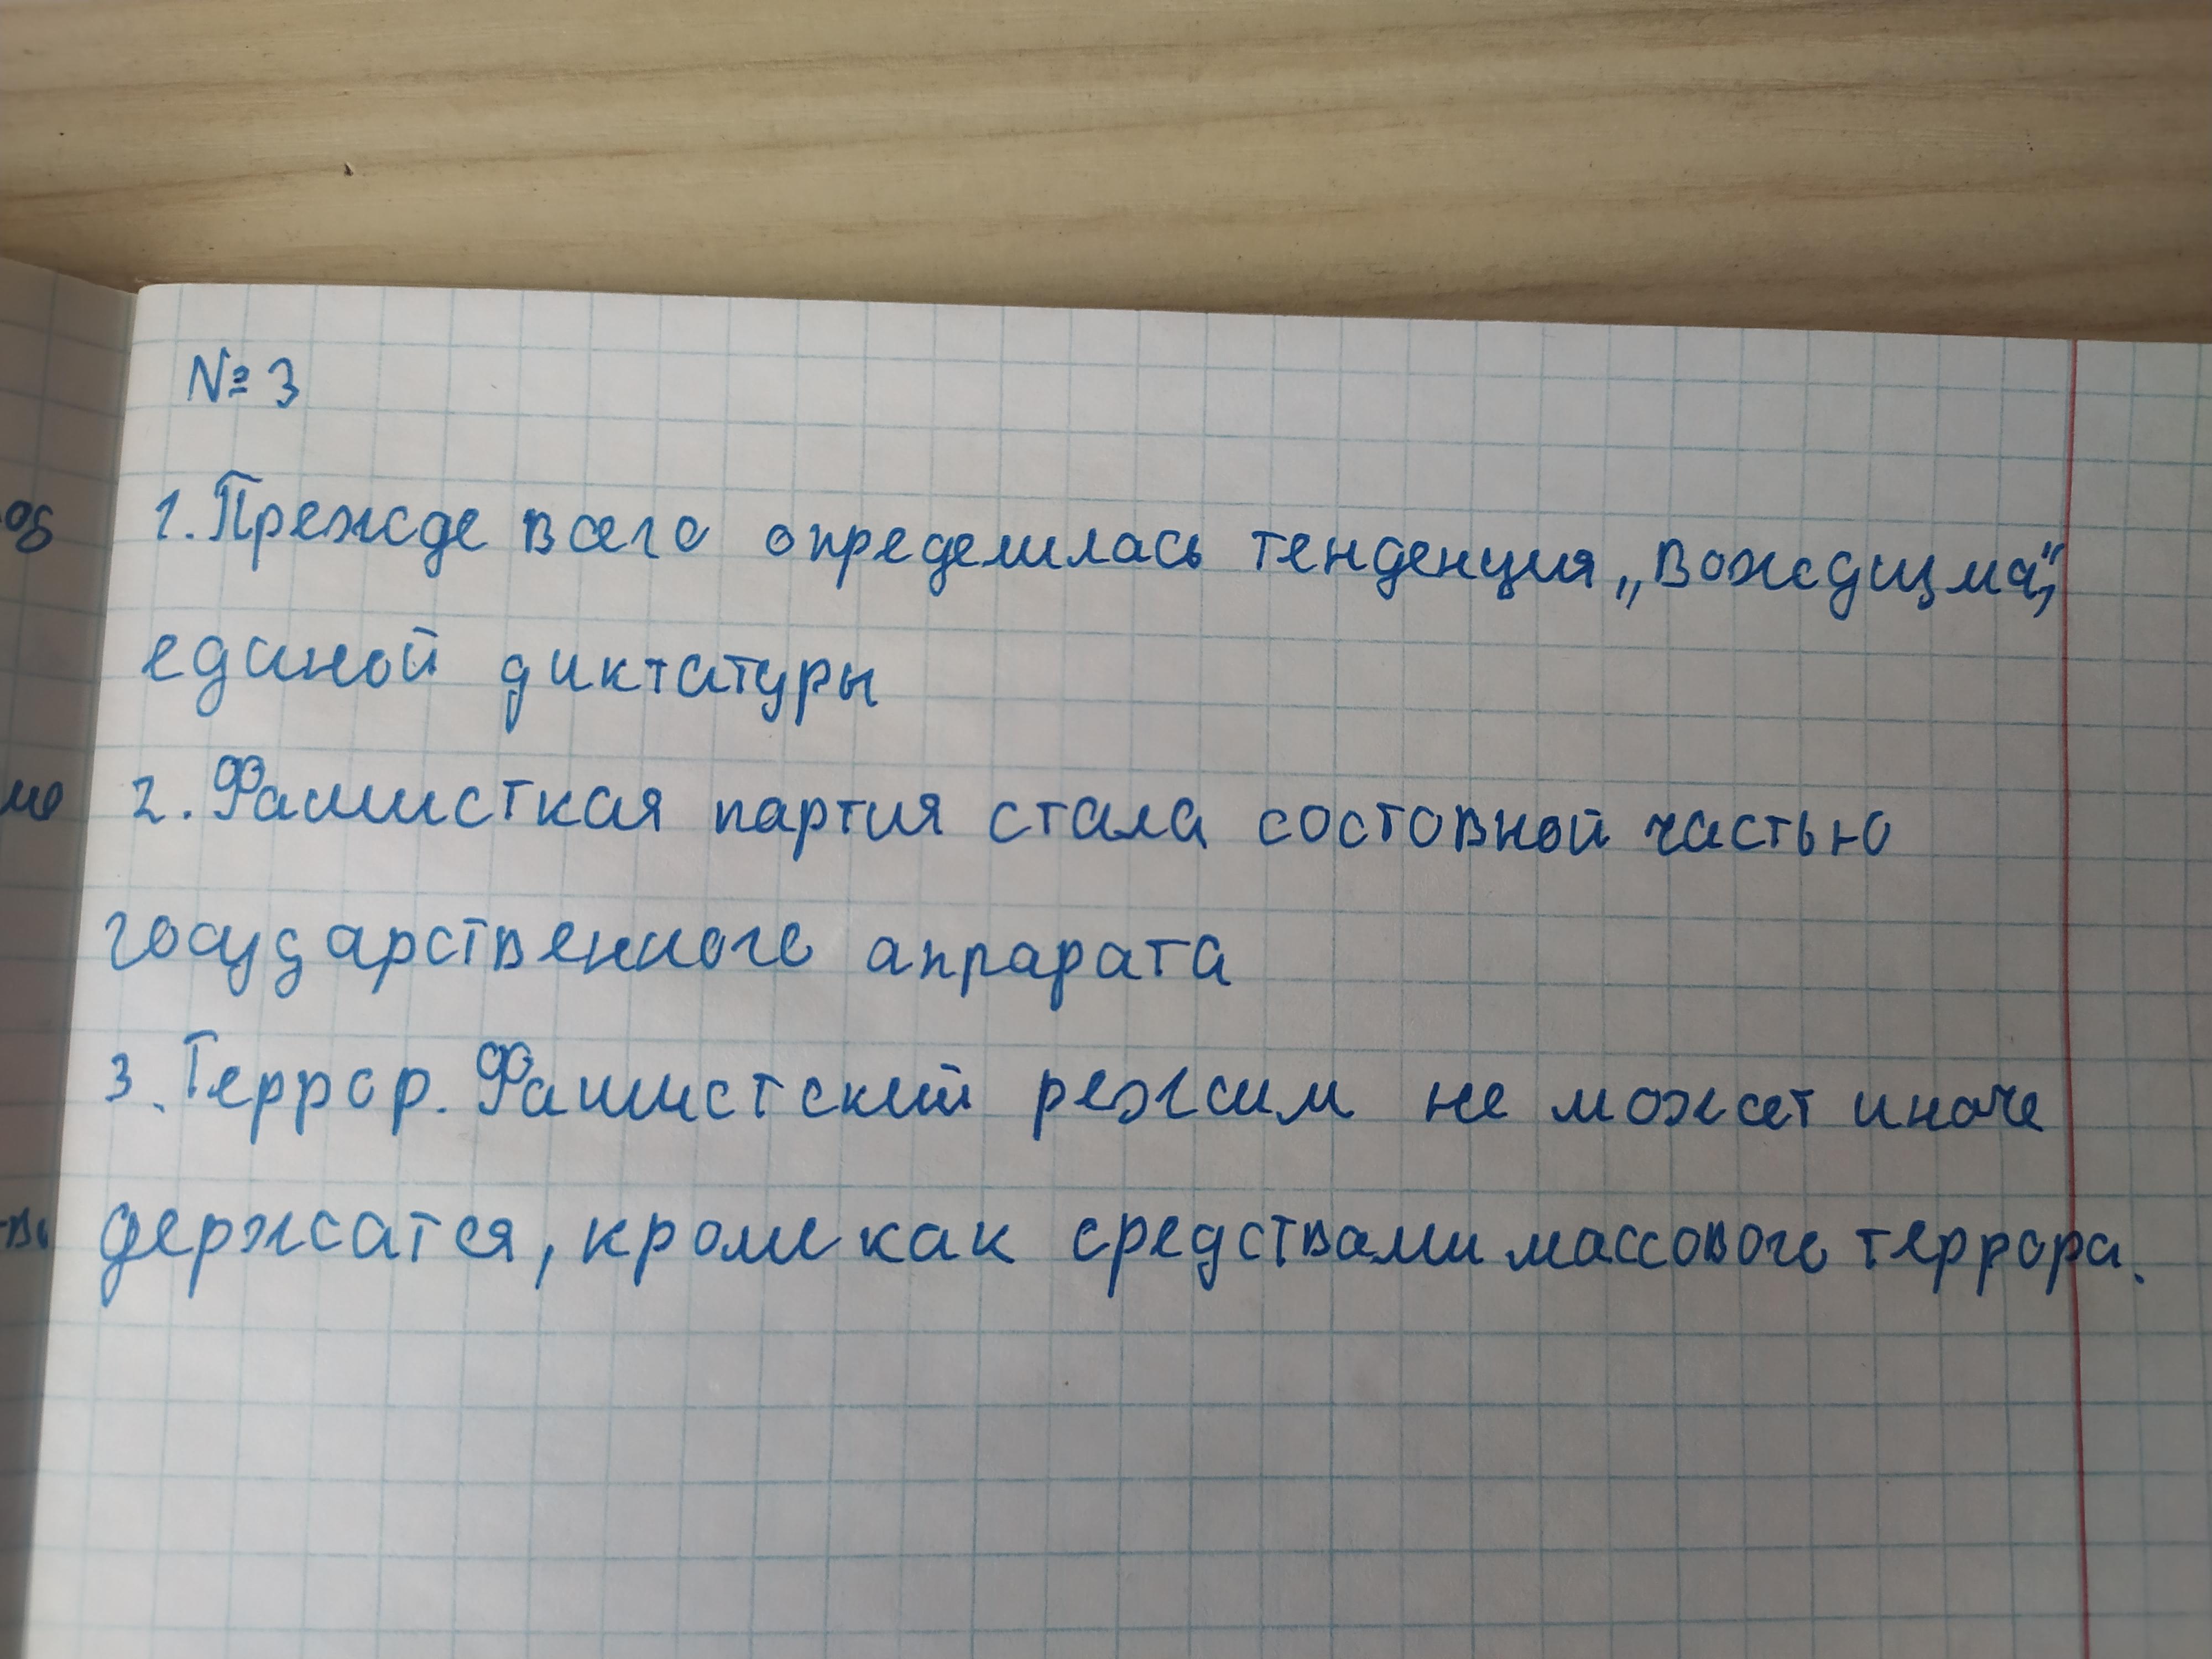 № 3
1. Прежде всего определилась тенденция „вождизма",
единой диктатуры
2. Фашисткая партия стала состовной частью
государственного аппрарата
3. Террор. Фашистский режим не может иначе
держатся, кроме как средствами массового террора.